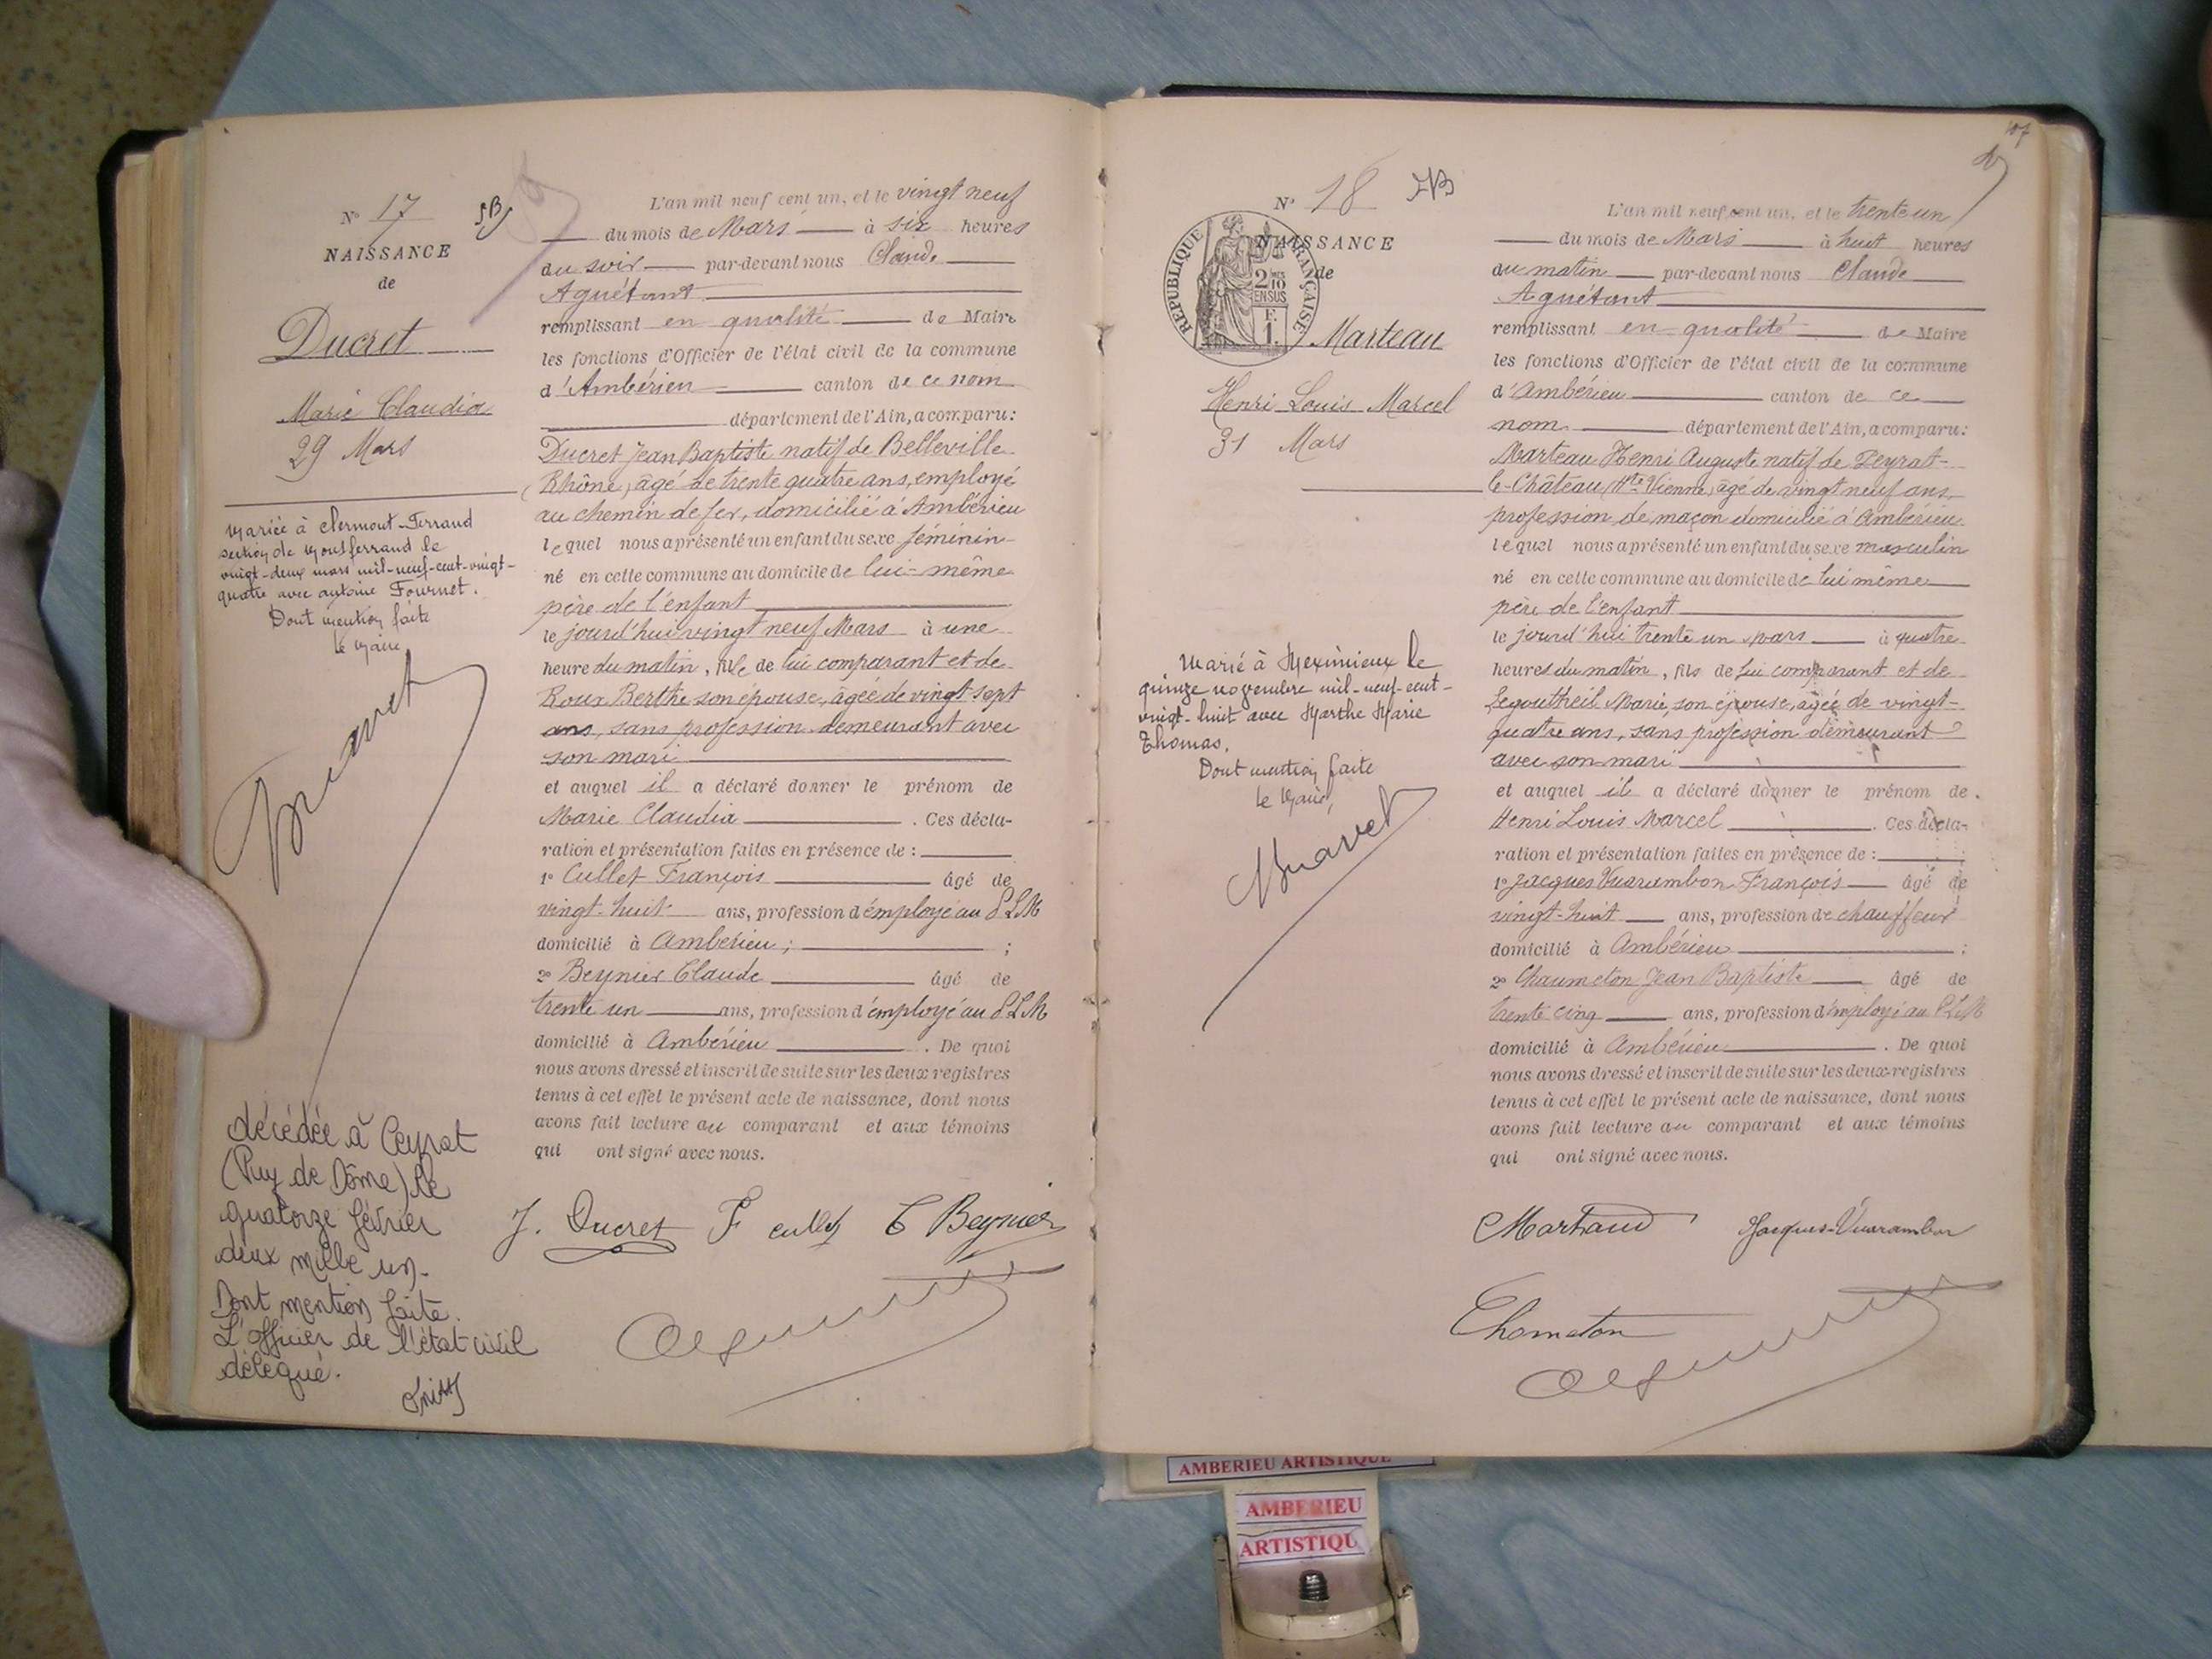 N° 17
NAISSANCE
de
Ducret
Marie Claudia
29 Mars
Mariée à Clermont-Ferrand
section de Montferrand le
vingt-deux mars mil-neuf-cent-vingt-
quatre avec Antoine Fournet.
Dont mention faite
le Maire
décédée à Ceyrat
(Puy de Dôme) le
quatorze février
deux mille un.
Dont mention faite.
L'officier de l'état civil
délégué.
L'an mil neuf cent un, et le vingt neuf
du mois de Mars à six heures
du soir par-devant nous Claude
Aguétant
remplissant en qualité de Maire
les fonctions d'Officier de l'état civil de la commune
d'Ambérieu canton de ce nom
département de l'Ain, a comparu:
Ducret Jean Baptiste natif de Belleville
(Rhône, âgé de trente quatre ans, employé
au chemin de fer, domicilié à Ambérieu
lequel nous a présenté un enfant du sexe féminin
né en cette commune au domicile de lui-même
père de l'enfant
le jourd'hui vingt neuf Mars à une
heure du matin, fille de lui comparant et de
Roux Berthe son épouse, âgée de vingt sept
ans, sans profession demeurant avec
son mari
et auquel il a déclaré donner le prénom de
Marie Claudia. Ces décla-
ration et présentation faites en présence de :
1° Cullet François âgé de
vingt-huit ans, profession d'employé au PLM
domicilié à Ambérieu ; ;
2° Beynier Claude âgé de
trente un ans, profession d'employé au PLM
domicilié à Ambérieu. De quoi
nous avons dressé et inscrit de suite sur les deux registres
tenus à cet effet le présent acte de naissance, dont nous
avons fait lecture au comparant et aux témoins
qui ont signé avec nous.
J. Ducret F Cullet C Beynier
107
N° 18
NAISSANCE
de
RÉPUBLIQUE FRANÇAISE
2/10
EN SUS
F.
1.
Marteau
Henri Louis Marcel
31 Mars
Marié à Meximieux le
quinze novembre mil-neuf-cent-
vingt-huit avec Marthe Marie
Thomas.
Dont mention faite
le Maire,
L'an mil neuf cent un, et le trente un
du mois de Mars à huit heures
du matin par-devant nous Claude
Aguétant
remplissant en qualité de Maire
les fonctions d'Officier de l'état civil de la commune
d'Ambérieu canton de ce
nom département de l'Ain, a comparu:
Marteau Henri Auguste natif de Peyrat-
le-Château (Hte Vienne, âgé de vingt neuf ans,
profession de maçon domicilié à Ambérieu
lequel nous a présenté un enfant du sexe masculin
né en cette commune au domicile de lui même
père de l'enfant
le jourd'hui trente un Mars à quatre
heures du matin, fils de lui comparant et de
Legoutheil Marie, son épouse, âgée de vingt-
quatre ans, sans profession demeurant
avec son mari
et auquel il a déclaré donner le prénom de
Henri Louis Marcel. Ces décla-
ration et présentation faites en présence de :
1° Jacques Vuarambon François âgé de
vingt-huit ans, profession de chauffeur
domicilié à Ambérieu :
2° Chaumeton Jean Baptiste âgé de
trente cinq ans, profession d'employé au PLM
domicilié à Ambérieu. De quoi
nous avons dressé et inscrit de suite sur les deux registres
tenus à cet effet le présent acte de naissance, dont nous
avons fait lecture au comparant et aux témoins
qui ont signé avec nous.
Martaud Jacques-Vuarambon
Chometon
AMBERIEU ARTISTIQUE
AMBERIEU
ARTISTIQU